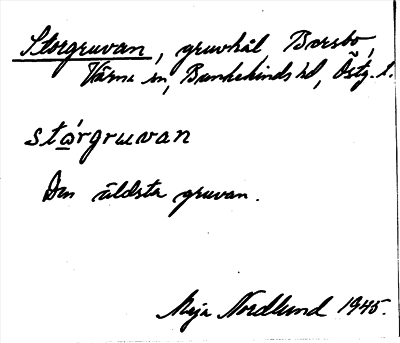 Storgruvan, gruvhål Bersbo,
Värna sn, Bankekinds hd, Östg. l.
stωrgruvan
Den äldsta gruvan.
Maja Nordlund 1945.